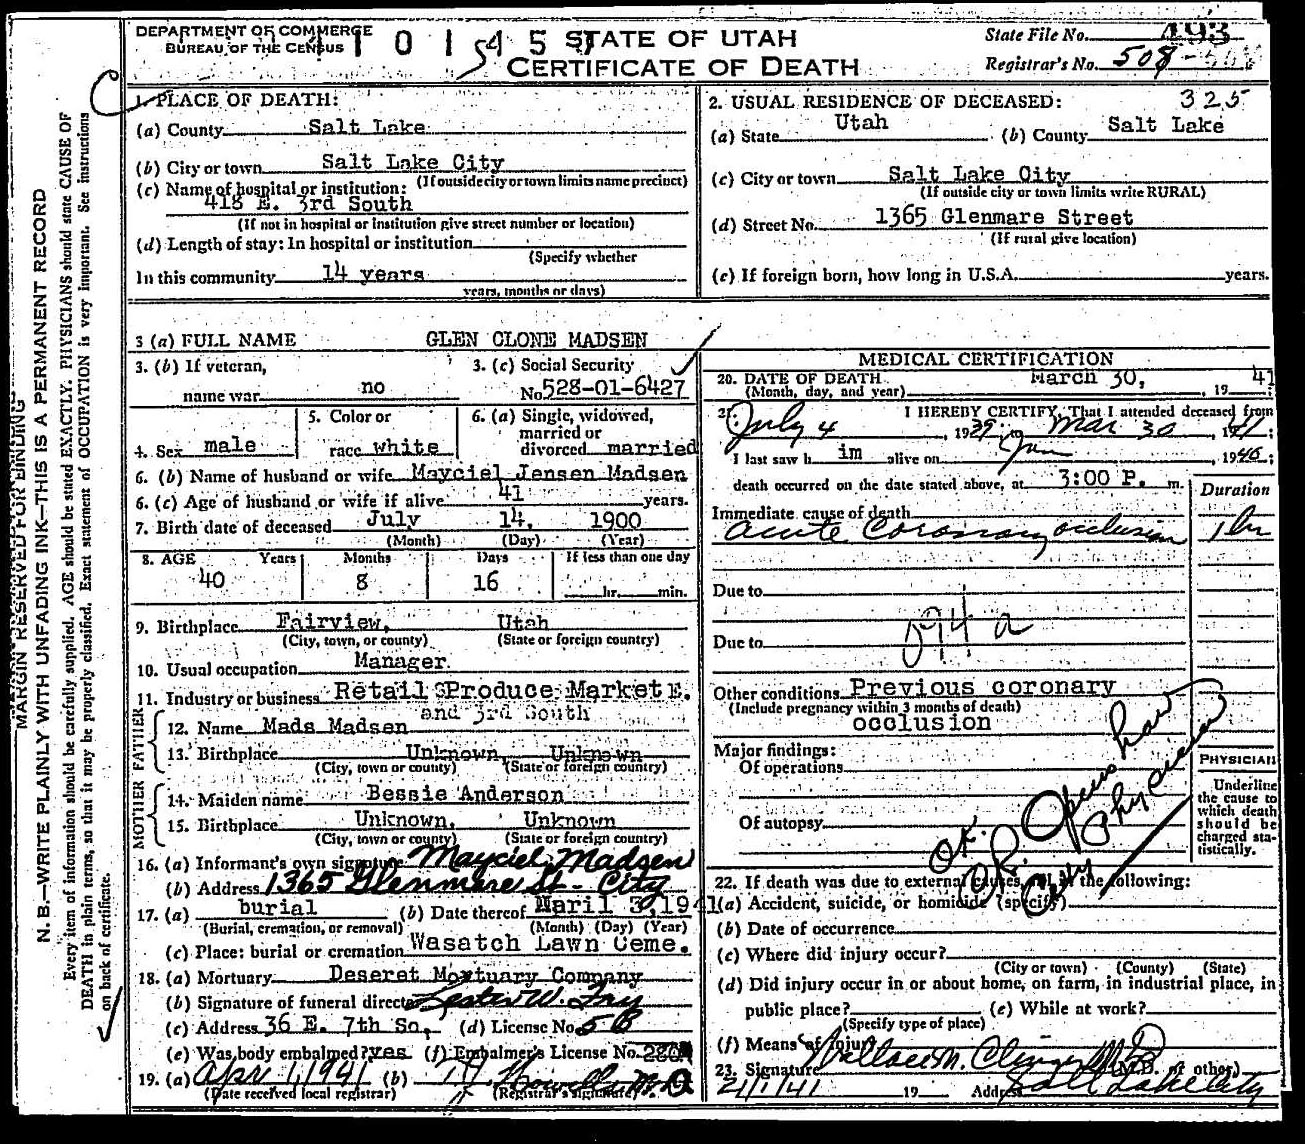 DEPARTMENT OF COMMERCE
BUREAU OF THE CENSUS
STATE OF UTAH
CERTIFICATE OF DEATH
State File No. 493
Registrar's No. 508
MARGIN RESERVED FOR BINDING
N. B.—WRITE PLAINLY WITH UNFADING INK—THIS IS A PERMANENT RECORD
Every item of information should be carefully supplied. AGE should be stated EXACTLY. PHYSICIANS should state CAUSE OF
DEATH in plain terms, so that it may be properly classified. Exact statement of OCCUPATION is very important. See instructions
on back of certificate.
1. PLACE OF DEATH:
(a) County Salt Lake
(b) City or town Salt Lake City
(If outside city or town limits name precinct)
(c) Name of hospital or institution:
418 E. 3rd South
(If not in hospital or institution give street number or location)
(d) Length of stay: In hospital or institution
(Specify whether
In this community 14 years
years, months or days)
2. USUAL RESIDENCE OF DECEASED: 325
(a) State Utah (b) County Salt Lake
(c) City or town Salt Lake City
(If outside city or town limits write RURAL)
(d) Street No. 1365 Glenmare Street
(If rural give location)
(e) If foreign born, how long in U.S.A. years.
3 (a) FULL NAME GLEN CLONE MADSEN
3. (b) If veteran, name war no
3. (c) Social Security No. 528-01-6427
4. Sex male
5. Color or race white
6. (a) Single, widowed, married or divorced married
6. (b) Name of husband or wife Mayciel Jensen Madsen
6. (c) Age of husband or wife if alive 41 years.
7. Birth date of deceased July 14, 1900
(Month) (Day) (Year)
8. AGE Years Months Days If less than one day
40 8 16 hr. min.
9. Birthplace Fairview, Utah
(City, town, or county) (State or foreign country)
10. Usual occupation Manager
11. Industry or business Retail Produce Market E.
and 3rd South
FATHER
12. Name Mads Madsen
13. Birthplace Unknown Unknown
(City, town or county) (State or foreign country)
MOTHER
14. Maiden name Bessie Anderson
15. Birthplace Unknown, Unknown
(City, town or county) (State or foreign country)
16. (a) Informant's own signature Mayciel Madsen
(b) Address 1365 Glenmere St - City
17. (a) burial (b) Date thereof 3, 1941
(Burial, cremation, or removal) (Month) (Day) (Year)
(c) Place: burial or cremation Wasatch Lawn Ceme.
18. (a) Mortuary Deseret Mortuary Company
(b) Signature of funeral director
(c) Address 36 E. 7th So, (d) License No. 58
(e) Was body embalmed? yes (f) Embalmer's License No.
19. (a) Apr 1, 1941 (b)
(Date received local registrar) (Registrar's signature)
MEDICAL CERTIFICATION
20. DATE OF DEATH March 30, 19 41
(Month, day, and year)
21. I HEREBY CERTIFY, That I attended deceased from
July 4, 1939 to Mar 30, 1941;
I last saw h im alive on Jan, 1940;
death occurred on the date stated above, at 3:00 P. m.
Duration
Immediate cause of death
Acute Coronary occlusion 1 hr
Due to
094 a
Due to
Other conditions Previous coronary
(Include pregnancy within 3 months of death)
occlusion
Major findings:
Of operations
Of autopsy
PHYSICIAN
Underline
the cause to
which death
should be
charged sta-
tistically.
O.K.
City Physician
22. If death was due to external causes, fill in the following:
(a) Accident, suicide, or homicide (specify)
(b) Date of occurrence
(c) Where did injury occur?
(City or town) (County) (State)
(d) Did injury occur in or about home, on farm, in industrial place, in
public place? (e) While at work?
(Specify type of place)
(f) Means of injury
23. Signature (M.D. or other)
19 Address Salt Lake City